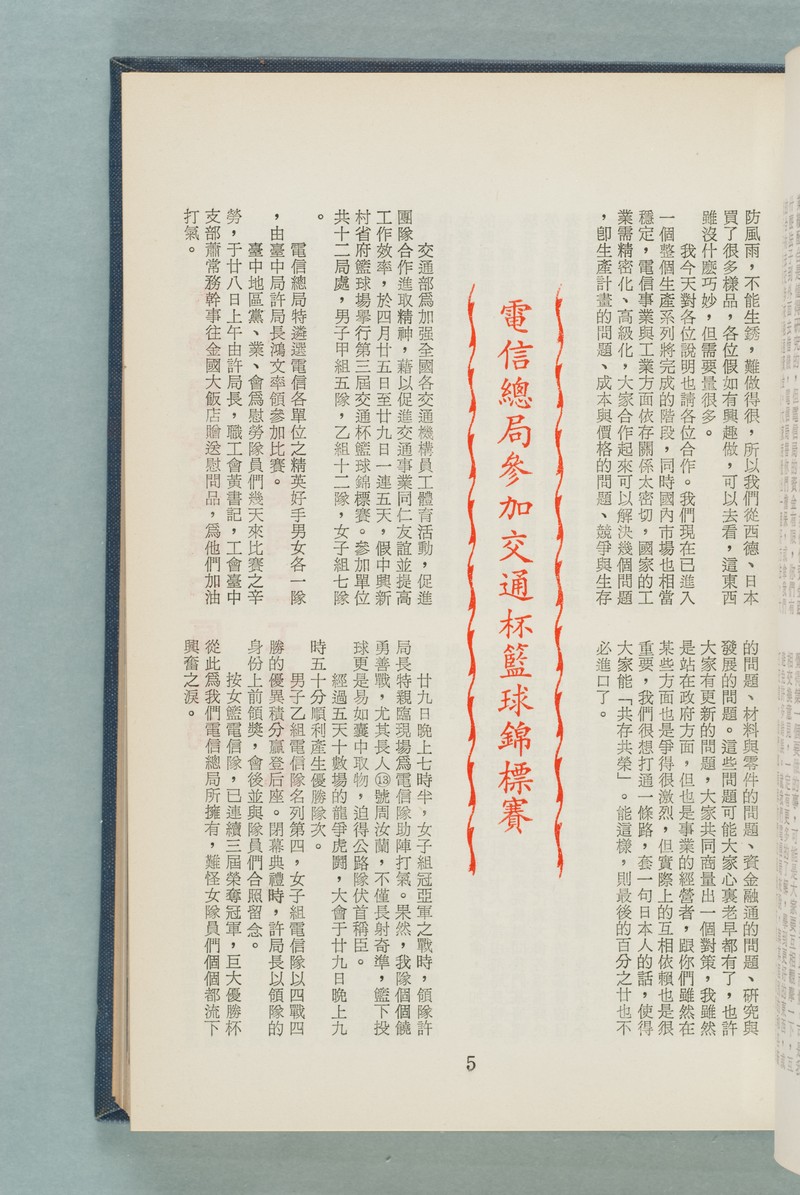 防風雨，不能生銹，難做得很，所以我們從西德、日本
買了很多樣品，各位假如有興趣做，可以去看，這東西
雖沒什麼巧妙，但需要量很多。
我今天對各位說明也請各位合作。我們現在已進入
一個整個生產系列將完成的階段，同時國內市場也相當
穩定，電信事業與工業方面依存關係太密切，國家的工
業需精密化、高級化，大家合作起來可以解決幾個問題
，卽生產計畫的問題、成本與價格的問題、競爭與生存
的問題、材料與零件的問題、資金融通的問題、研究與
發展的問題。這些問題可能大家心裏老早都有了，也許
大家有更新的問題，大家共同商量出一個對策，我雖然
是站在政府方面，但也是事業的經營者，跟你們雖然在
某些方面也是爭得很激烈，但實際上的互相依賴也是很
重要，我們很想打通一條路，套一句日本人的話，使得
大家能「共存共榮」。能這樣，則最後的百分之廿也不
必進口了。
電信總局參加交通杯籃球錦標賽
交通部爲加强全國各交通機構員工體育活動，促進
團隊合作進取精神，藉以促進交通事業同仁友誼並提高
工作效率，於四月廿五日至廿九日一連五天，假中興新
村省府籃球場擧行第三屆交通杯籃球錦標賽。參加單位
共十二局處，男子甲組五隊，乙組十二隊，女子組七隊
。
電信總局特遴選電信各單位之精英好手男女各一隊
，由臺中局許局長鴻文率領參加比賽。
臺中地區黨、業、會爲慰勞隊員們幾天來比賽之辛
勞，于廿八日上午由許局長，職工會黃書記，工會臺中
支部蕭常務幹事往金國大飯店贈送慰問品，爲他們加油
打氣。
廿九日晚上七時半，女子組冠亞軍之戰時，領隊許
局長特親臨現場爲電信隊助陣打氣。果然，我隊個個饒
勇善戰，尤其長人⑬號周汝蘭，不僅長射奇準，籃下投
球更是易如囊中取物，迫得公路隊伏首稱臣。
經過五天十數場的龍爭虎鬪，大會于廿九日晚上九
時五十分順利產生優勝隊次。
男子乙組電信隊名列第四，女子組電信隊以四戰四
勝的優異積分贏登后座。閉幕典禮時，許局長以領隊的
身份上前領獎，會後並與隊員們合照留念。
按女籃電信隊，已連續三屆榮奪冠軍，巨大優勝杯
從此爲我們電信總局所擁有，難怪女隊員們個個都流下
興奮之淚。
5